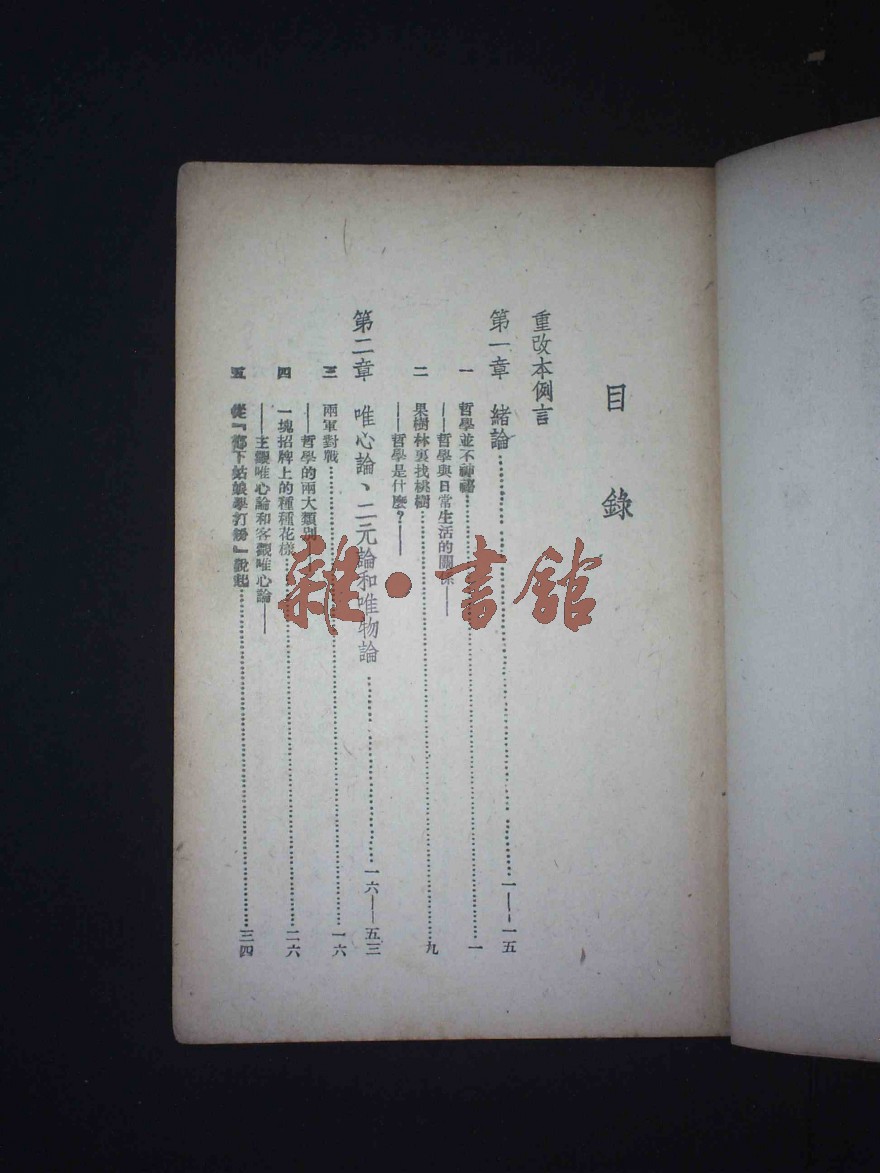 目錄
重改本例言
第一章 緒論……一——一五
一 哲學並不神祕……一
——哲學與日常生活的關係——
二 果樹林裏找桃樹……九
——哲學是什麼？——
第二章 唯心論、二元論和唯物論……一六——五三
三 兩軍對戰……一六
——哲學的兩大類別——
四 一塊招牌上的種種花樣……二六
——主觀唯心論和客觀唯心論——
五 從『鄉下姑娘學打扮』說起……三四
雜·書館